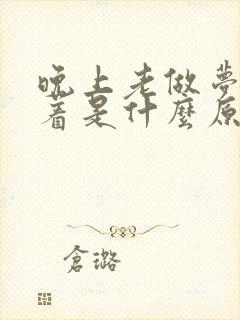 晚上老做夢
著是什麼原
倉璐